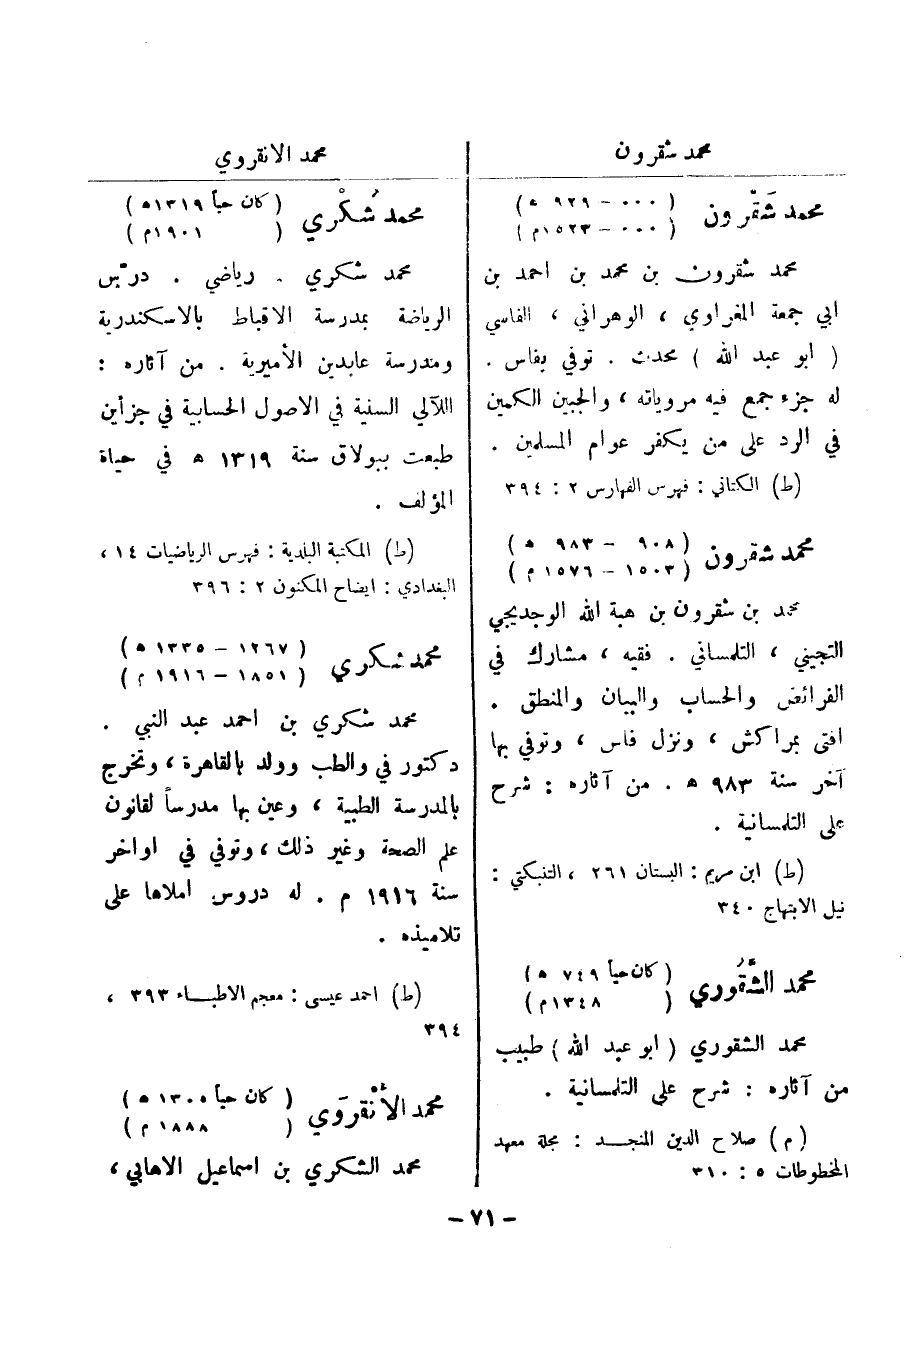 محمد شقرون
محمد شَقْرون
( ٠٠٠ - ٩٢٩ ه )
( ٠٠٠ - ١٥٢٣م )
محمد شقرون بن محمد بن احمد بن
ابي جمعة المغراوي ، الوهراني ، الفاسي
( ابو عبد الله ) محدث . توفي بفاس .
له جزء جمع فيه مروياته ، والجبين الكمين
في الرد على من يكفر عوام المسلمين .
(ط) الكتاني : فهرس الفهارس ٢ : ٣٩٤
محمد شقرون
( ٩٠٨ - ٩٨٣ ه )
( ١٥٠٣ - ١٥٧٦ م )
محمد بن شقرون بن هبة الله الوجديجي
التجيني ، التلمساني . فقيه ، مشارك في
الفرائض والحساب والبيان والمنطق .
افتى بمراكش ، ونزل فاس ، وتوفي بها
آخر سنة ٩٨٣ ه . من آثاره : شرح
على التلمسانية .
(ط) ابن مريم : البستان ٢٦١ ، التنبكتي :
نيل الابتهاج ٣٤٠
محمد الشَّقُوري
( كان حياً ٧٤٩ ه )
( ١٣٤٨م )
محمد الشقوري ( ابو عبد الله ) طبيب
من آثاره : شرح على التلمسانية .
(م) صلاح الدين المنجد : مجلة معهد
المخطوطات ٥ : ٣١٠
محمد الانقروي
محمد شُكْري
( كان حياً ١٣١٩ه )
( ١٩٠١م )
محمد شكري . رياضي . درّس
الرياضة بمدرسة الاقباط بالاسكندرية
ومدرسة عابدين الأميرية . من آثاره :
اللآلي السنية في الاصول الحسابية في جزأين
طبعت ببولاق سنة ١٣١٩ ه في حياة
المؤلف .
(ط) المكتبة البلدية : فهرس الرياضيات ١٤ ،
البغدادي : ايضاح المكنون ٢ : ٣٩٦
محمد شكري
( ١٢٦٧ - ١٣٣٥ ه )
( ١٨٥١ - ١٩١٦ م )
محمد شكري بن احمد عبد النبي .
دكتور في والطب وولد بالقاهرة ، وتخرج
بالمدرسة الطبية ، وعين بها مدرساً لقانون
علم الصحة وغير ذلك ، وتوفي في اواخر
سنة ١٩١٦ م . له دروس املاها على
تلاميذه .
(ط) احمد عيسى : معجم الاطباء ٣٩٣ ،
٣٩٤
محمد الأَنْقِرَوي
( كان حياً ١٣٠٥ ه )
( ١٨٨٨ م )
محمد الشكري بن اسماعيل الاهابي ،
- ٧١ -